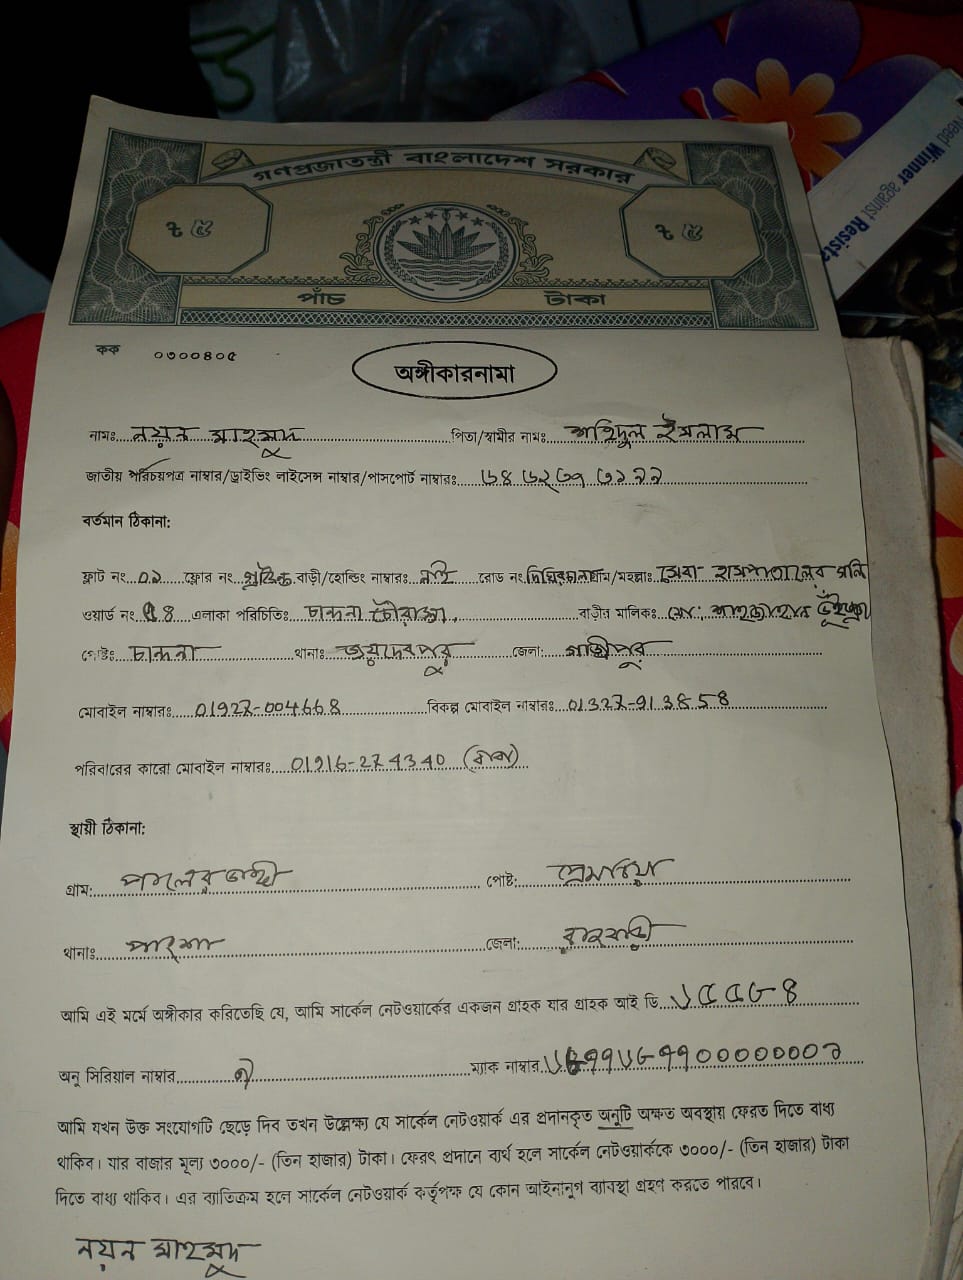 গণপ্রজাতন্ত্রী বাংলাদেশ সরকার
৳ ৫ ৳ ৫
পাঁচ টাকা
কক ০৩০০৪০৫
অঙ্গীকারনামা
নামঃ নয়ন মাহমুদ পিতা/স্বামীর নামঃ শহিদুল ইসলাম
জাতীয় পরিচয়পত্র নাম্বার/ড্রাইভিং লাইসেন্স নাম্বার/পাসপোর্ট নাম্বারঃ
বর্তমান ঠিকানা:
ফ্লাট নং ০১ ফ্লোর নং বাড়ী/হোল্ডিং নাম্বারঃ নাই রোড নং গ্রাম/মহল্লাঃ সেবা হাসপাতালের গলি
ওয়ার্ড নং এলাকা পরিচিতিঃ চান্দনা চৌরাস্তা, বাড়ীর মালিকঃ মোঃ শাহজাহান ভূঁইয়া
পোষ্টঃ চান্দনা থানাঃ জয়দেবপুর জেলা: গাজীপুর
মোবাইল নাম্বারঃ 01927-004668 বিকল্প মোবাইল নাম্বারঃ 01327-913858
পরিবারের কারো মোবাইল নাম্বারঃ 01916-274340 (বাবা)
স্থায়ী ঠিকানা:
গ্রাম: পোষ্ট:
থানাঃ পাংশা জেলা: রাজবাড়ী
আমি এই মর্মে অঙ্গীকার করিতেছি যে, আমি সার্কেল নেটওয়ার্কের একজন গ্রাহক যার গ্রাহক আই ডি
অনু সিরিয়াল নাম্বার ম্যাক নাম্বার
আমি যখন উক্ত সংযোগটি ছেড়ে দিব তখন উল্লেক্ষ্য যে সার্কেল নেটওয়ার্ক এর প্রদানকৃত অনুটি অক্ষত অবস্থায় ফেরত দিতে বাধ্য
থাকিব। যার বাজার মূল্য ৩০০০/- (তিন হাজার) টাকা। ফেরৎ প্রদানে ব্যর্থ হলে সার্কেল নেটওয়ার্ককে ৩০০০/- (তিন হাজার) টাকা
দিতে বাধ্য থাকিব। এর ব্যতিক্রম হলে সার্কেল নেটওয়ার্ক কর্তৃপক্ষ যে কোন আইনানুগ ব্যাবস্থা গ্রহণ করতে পারবে।
নয়ন মাহমুদ
Winner against